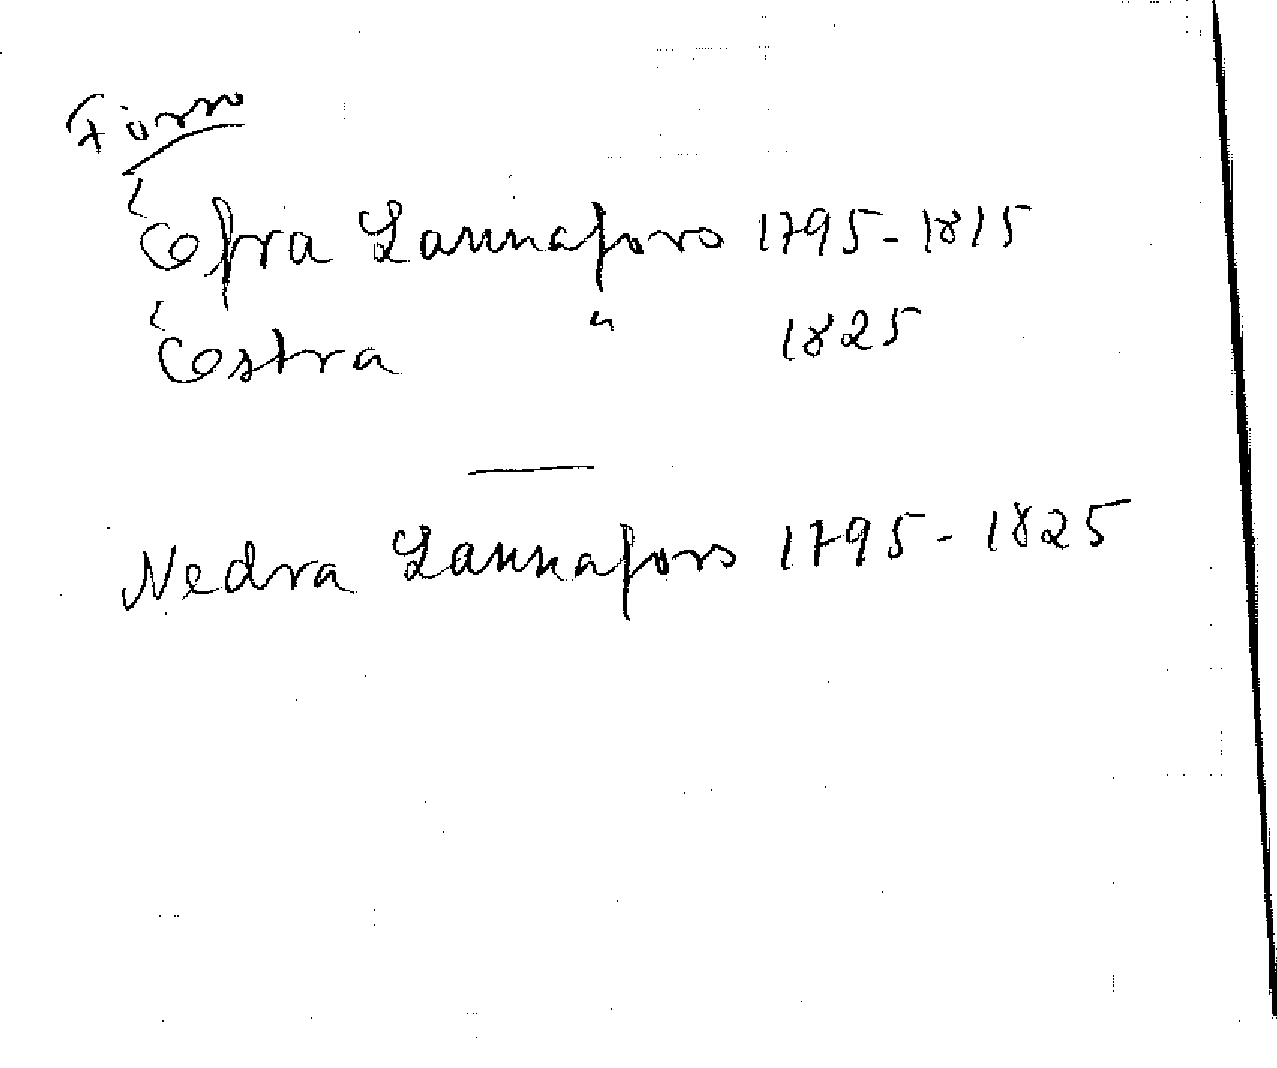 Förr
Öfra Lannafors 1795-1815
Östra " 1825
Nedra Lannafors 1795-1825